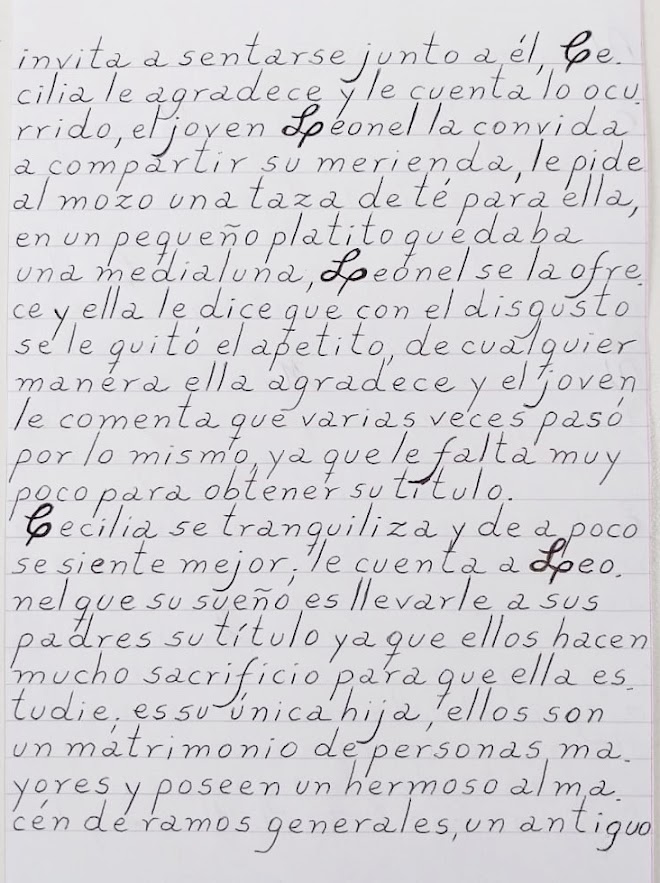 invita a sentarse junto a él, Ce.
cilia le agradece y le cuenta lo ocu.
rrido, el joven Leonel la convida
a compartir su merienda, le pide
al mozo una taza de té para ella,
en un pequeño platito quedaba
una medialuna, Leonel se la ofre.
ce y ella le dice que con el disgusto
se le quitó el apetito, de cualquier
manera ella agradece y el joven
le comenta que varias veces pasó
por lo mismo, ya que le falta muy
poco para obtener su título.
Cecilia se tranquiliza y de a poco
se siente mejor. le cuenta a Leo.
nel que su sueño es llevarle a sus
padres su título ya que ellos hacen
mucho sacrificio para que ella es.
tudie. es su única hija, ellos son
un matrimonio de personas ma.
yores y poseen un hermoso alma.
cén de ramos generales, un antiguo